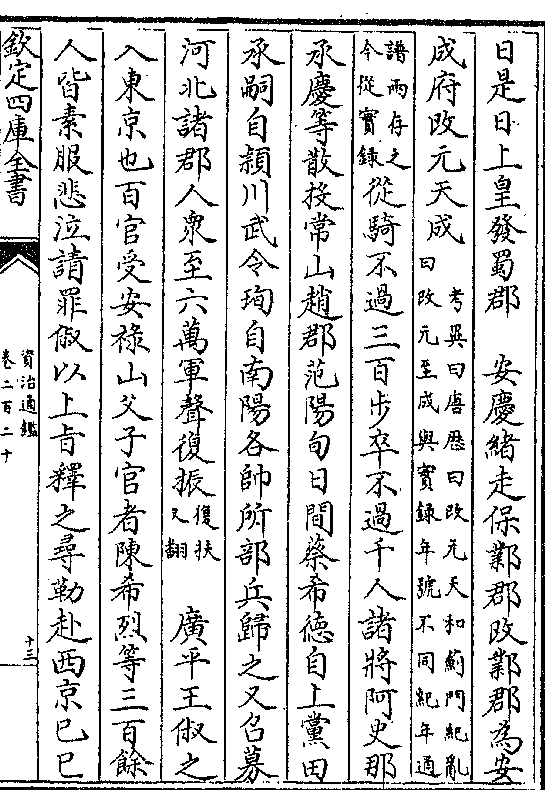 日是日上皇發蜀郡　安慶緒走保鄴郡改鄴郡為安
成府改元天成考異曰唐歴曰改元天和薊門紀亂
曰改元至成與實録年號不同紀年通
譜兩存之
今從實録從騎不過三百步卒不過千人諸將阿史那
承慶等散投常山趙郡范陽旬日間蔡希徳自上黨田
承嗣自頴川武令珣自南陽各帥所部兵歸之又召募
河北諸郡人衆至六萬軍聲復振復扶
又翻　廣平王俶之
入東京也百官受安禄山父子官者陳希烈等三百餘
人皆素服悲泣請罪俶以上旨釋之尋勒赴西京己巳
欽定四庫全書
資治通鑑
卷二百二十
十三